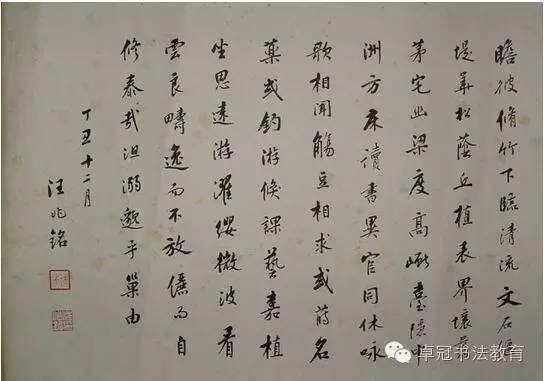 瞻彼脩竹下臨清流文石
堤華松蔭丘植表界壤
茅宅幽梁度高臺隱中
洲方床讀書異官同休咏
歌相聞觴豆相求或蒔名
藥或釣游倏課藝嘉植
坐思遠游濯纓微波看
雲良疇逸而不放儒而自
修泰哉沮溺邈乎巢由
丁丑十二月
汪兆銘
卓冠书法教育